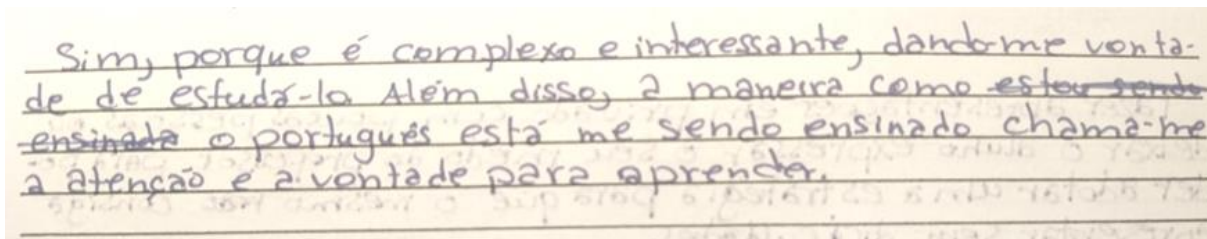 Sim, porque é complexo e interessante, dando-me vonta-
de de estudá-lo. Além disso, a maneira como estou sendo
ensinada o português está me sendo ensinado chama-me
a atenção e a vontade para aprender.